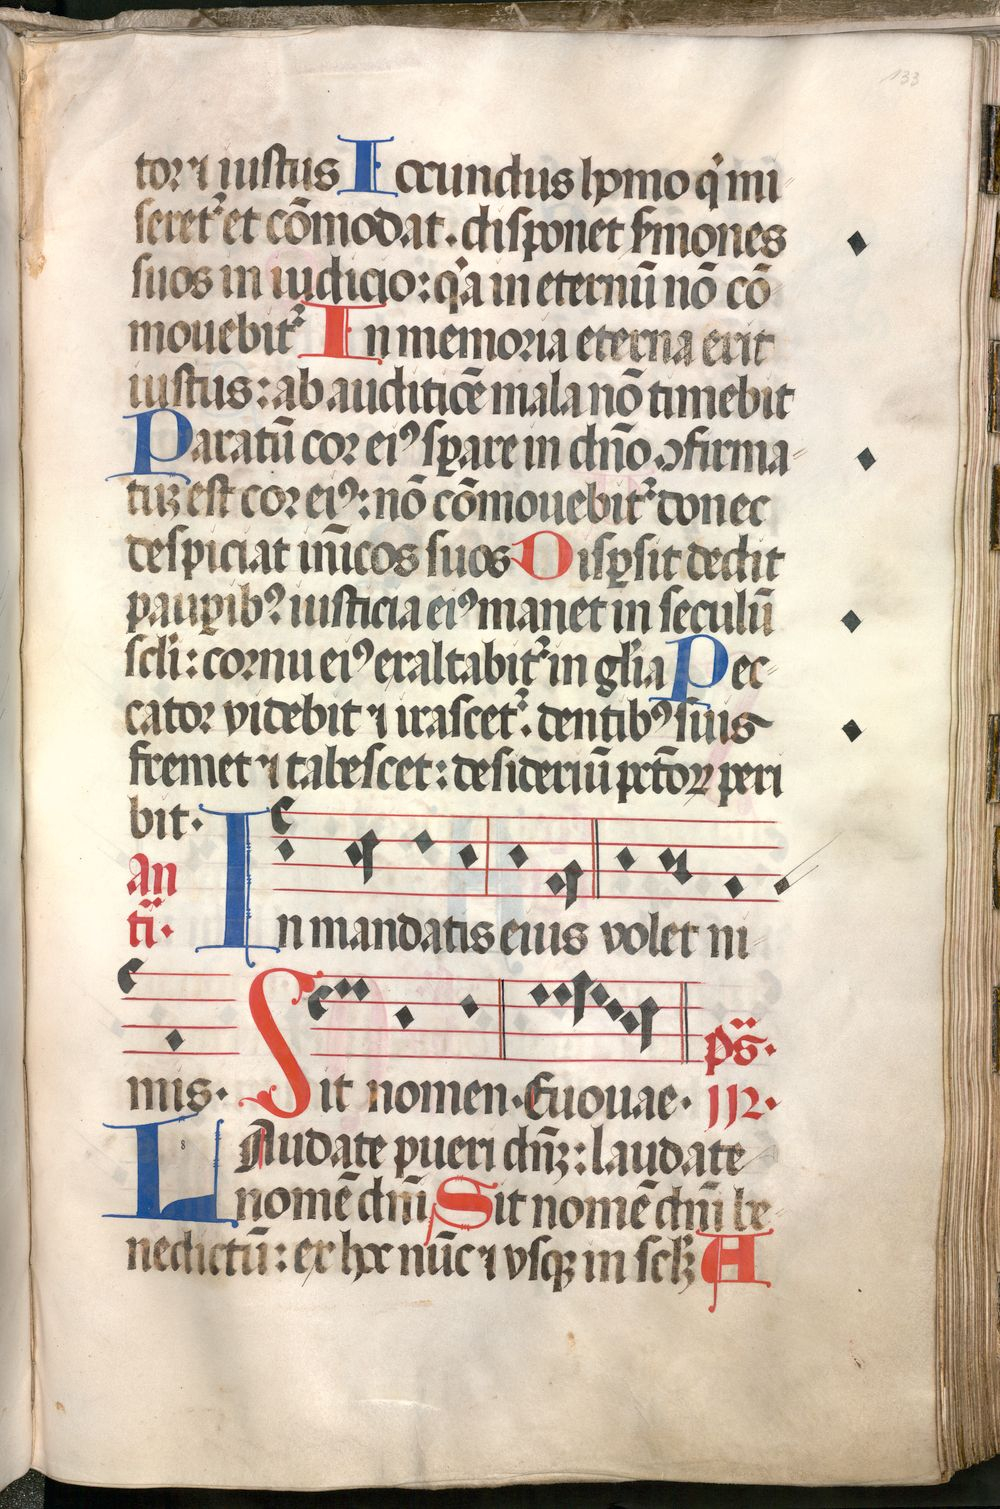 133
tor ⁊ iustus Iocundus hõmo q̇ mi
seret᷑ et cõmodat. disponet s̃mones
suos in iudicio: q̇a in eternũ nõ cõ
mouebit᷑ In memoria eterna erit
iustus: ab auditiõe mala nõ timebit
Paratũ cor eiꝰ sꝑare in dño ꝯfirma
tuꝫ est cor eiꝰ: nõ cõmouebit᷑ donec
despiciat inĩcos suos Disꝑsit dedit
pauꝑibꝰ iusticia eiꝰ manet in seculũ
scł̃i: cornu eiꝰ exaltabit᷑ in gł̃ia Pec
cator videbit ⁊ irascet᷑. dentibꝰ suis
fremet ⁊ tabescet: desideriũ pc̃toꝝ peri
bit.
an
ti.
In mandatis eius volet ni
mis. Sit nomen. Euouae.
ps.
112.
LAudate pueri dñꝫ: laudate
nomẽ dñi Sit nomẽ dñi be
nedictũ: ex hoc nũc ⁊ vsqꝫ in scł̃ꝫ A